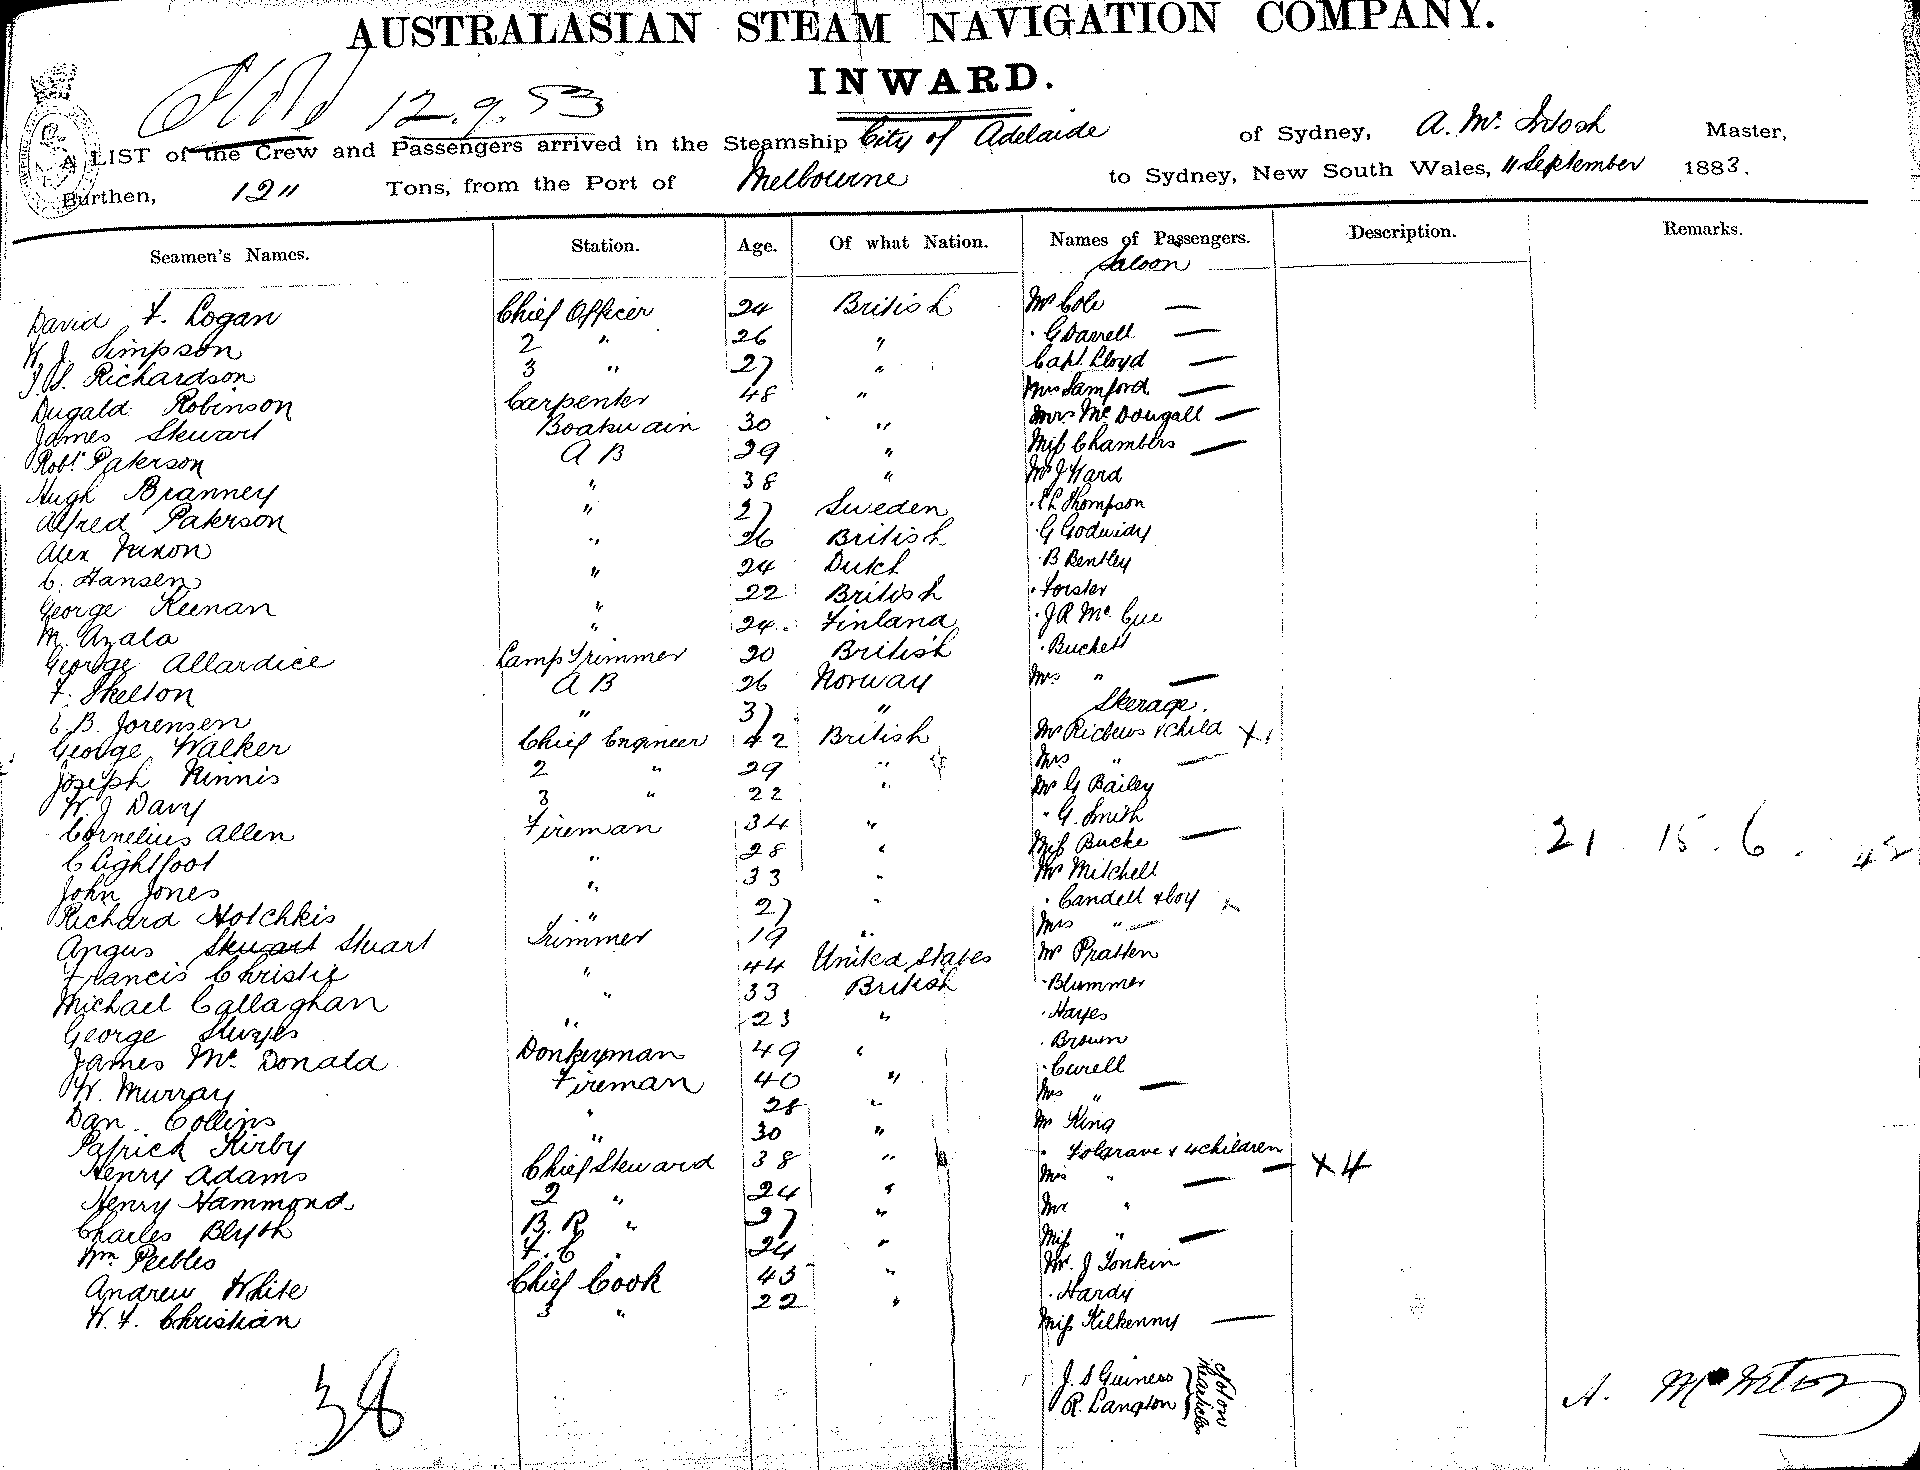 AUSTRALASIAN STEAM NAVIGATION COMPANY.
INWARD.
12.9.83
A LIST of the Crew and Passengers arrived in the Steamship City of Adelaide of Sydney, A. Mc Intosh Master,
Burthen, 1211 Tons, from the Port of Melbourne to Sydney, New South Wales, 11 September 1883.
Seamen's Names. Station. Age. Of what Nation. Names of Passengers. Description. Remarks.
Saloon
David F. Logan Chief Officer 24 British Mr Cole —
W. J. Simpson 2 " 26 " " G Darrell —
J. S. Richardson 3 " 27 " Capt. Lloyd —
Dugald Robinson Carpenter 48 " Mrs Samford —
James Stewart Boatswain 30 " Mrs Mc Dougall —
Robt Paterson A B 29 " Miss Chambers —
Hugh Branney " 38 " Mr J Ward
Alfred Paterson " 27 Sweden " Thompson
Alex " 26 British " G
C. Hansen " 24 Dutch " B Bentley
George Keenan " 22 British " Forster
M. Azala " 24 Finland " J R Mc Cue
George Allardice Lamp Trimmer 20 British " Buckett
F. Skelton A B 26 Norway Mrs " —
C B. Jorensen " 37 " Steerage.
George Walker Chief Engineer 42 British Mr & Child X1
Joseph Ninnis 2 " 29 " Mrs " —
W. J Davy 3 " 22 " Mr G Bailey
Cornelius Allen Fireman 34 " " G. Smith
C Lightfoot " 28 " Miss Bucke —
John Jones " 33 " Mr Mitchell
Richard Hotchkis " 27 " " Candell & boy X
Angus Stewart Stuart Trimmer 19 " Mrs " —
Francis Christie " 44 United States Mr Pratten
Michael Callaghan " 33 British " Blummer
George " 23 " " Hayes
James Mc Donald Donkeyman 49 " " Brown
W. Murray Fireman 40 " " Curell
Dan Collins " 28 " Mrs " —
Patrick Kirby " 30 " Mr King
Henry Adams Chief Steward 38 " " Folgrave & 4 children — X 4
Henry Hammond 2 " 24 " Mrs " —
Charles Blyth B. R " 27 " Mr "
Wm Peebles F. C " 24 " Miss " —
Andrew White Chief Cook 43 " Mr. J Tonkin
W. F. Christian 3 " 22 " " Hardy
Miss Kilkenny —
21 . 15 . 6 . 42
38
J. S Guiness
R. Langton
A. McIntosh